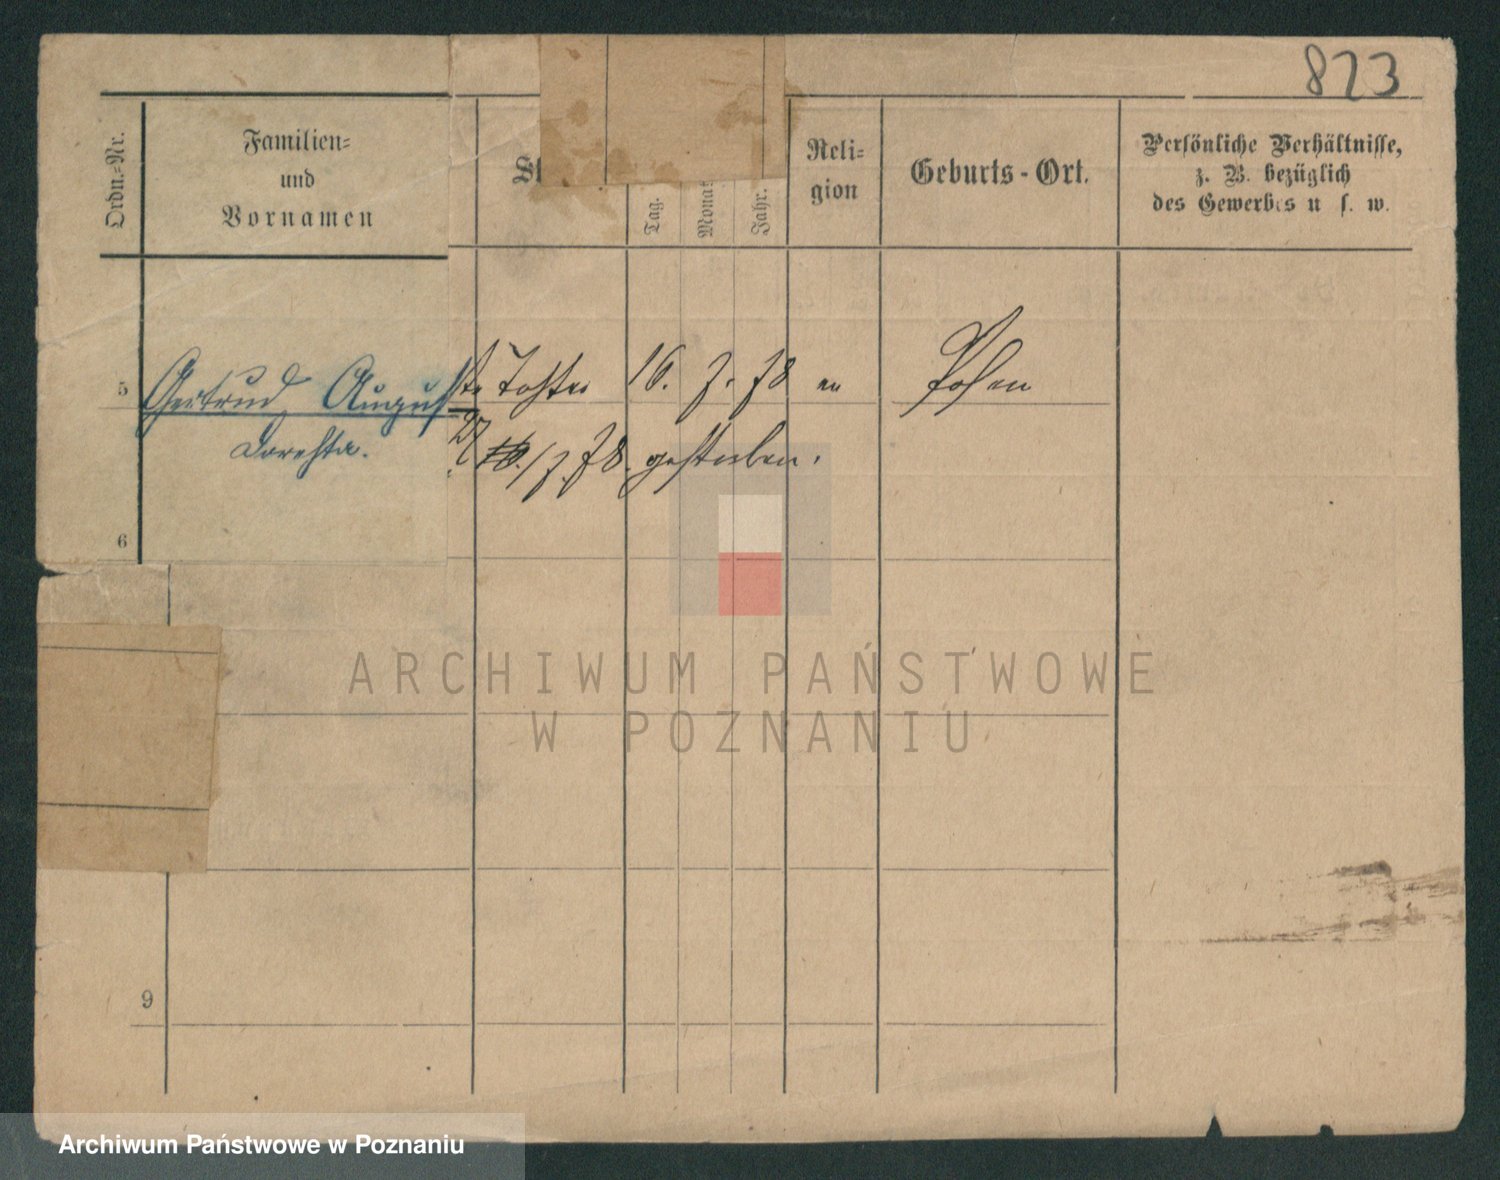 823
Ordn.=Nr.
Familien=
und
Vornamen
Tag.
Monat
Jahr.
Reli=
gion
Geburts-Ort.
Persönliche Verhältnisse,
z. B. bezüglich
des Gewerbes u. s. w.
5 Gertrud Auguste Tochter 16. 7. 78 ev Posen
27 /7. 78. gestorben.
6
9
ARCHIWUM PAŃSTWOWE
W POZNANIU
Archiwum Państwowe w Poznaniu